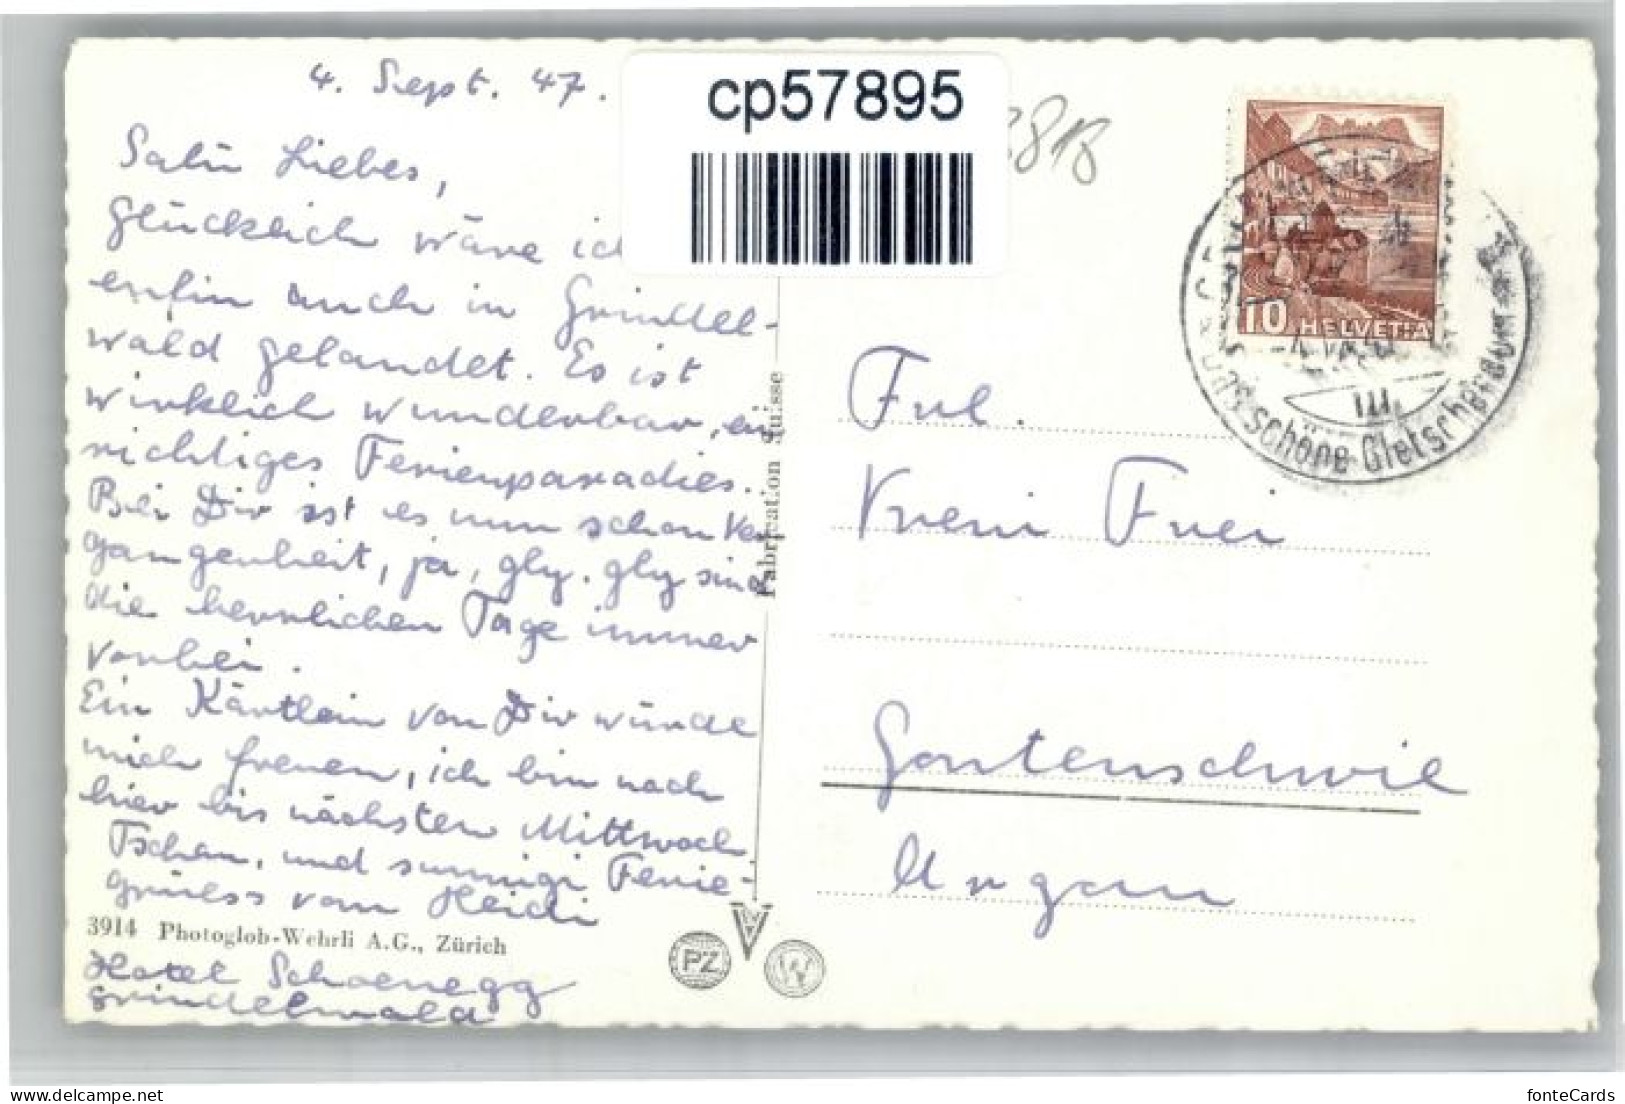 4. Sept. 47.
Salü Liebes,
glücklich wäre ich
enfin auch in Grindel-
wald gelandet. Es ist
wirklich wunderbar, ein
richtiges Ferienparadies.
Bei Dir ist es nun schon Ver
gangenheit, ja, gly. gly sind
die herrlichen Tage immer
vorbei.
Ein Kärtlein von Dir würde
mich freuen, ich bin noch
hier bis nächsten Mittwoch.
Tschau, und sunnigi Ferie-
grüess vom Heidi
3914 Photoglob-Wehrli A.G., Zürich
Hotel Schoenegg
Grindelwald
cp57895
Fabrication Suisse
PZ
W
10 HELVETIA
III
schöne Gletscherdorf
Frl.
Vreni Frei
Gontenschwil
Argau
fonteCards